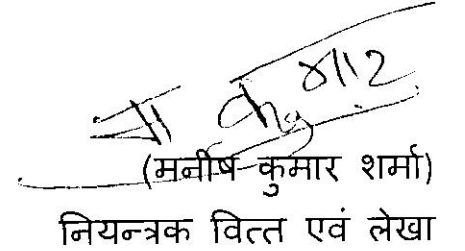 (मनीष कुमार शर्मा)
नियन्त्रक वित्त एवं लेखा